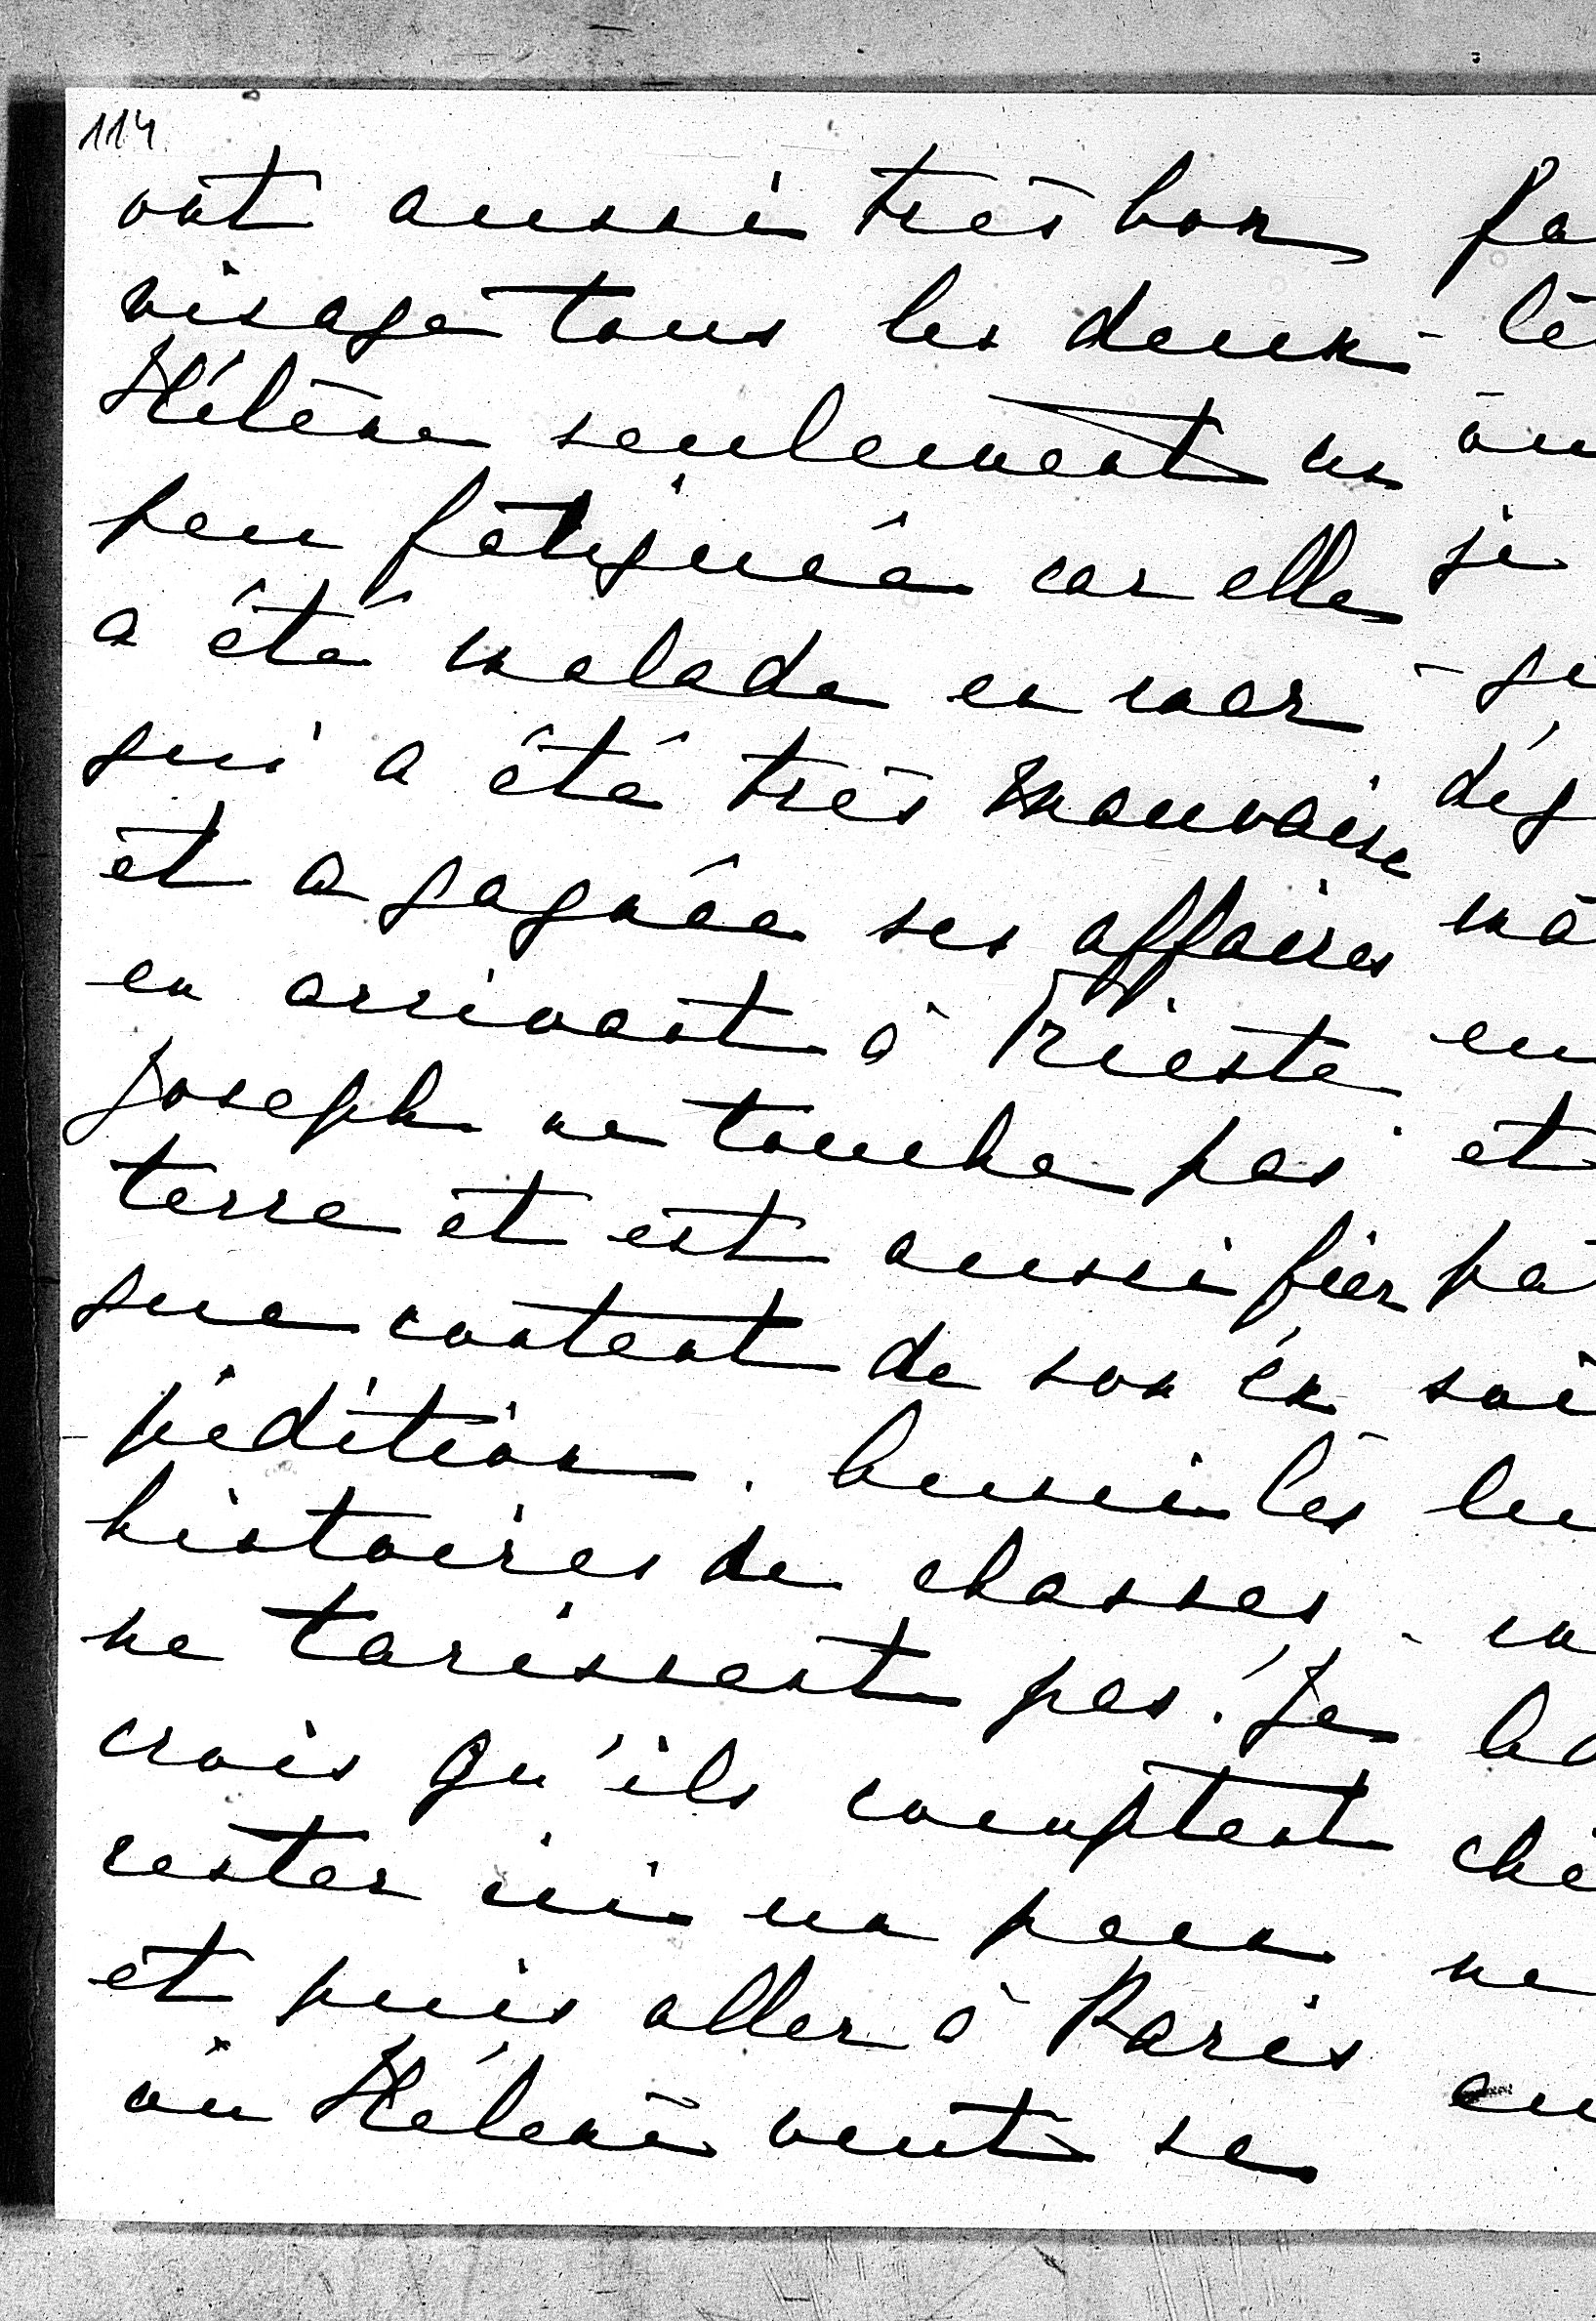 114
ont aussi très bon
visage tous les deux -
Hélène seulement un
peu fatiguée car elle
a été malade en mer
qui a été très mauvaise
et a gagnée ses affaires
en arrivant à Trieste
Joseph ne touche pas
terre et est aussi fier
que content de son ex
pédition. Aussi les
histoires de chasses
ne tarissent pas! Je
crois qu'ils comptent
rester ici un peu
et puis aller à Paris
où Hélène veut se